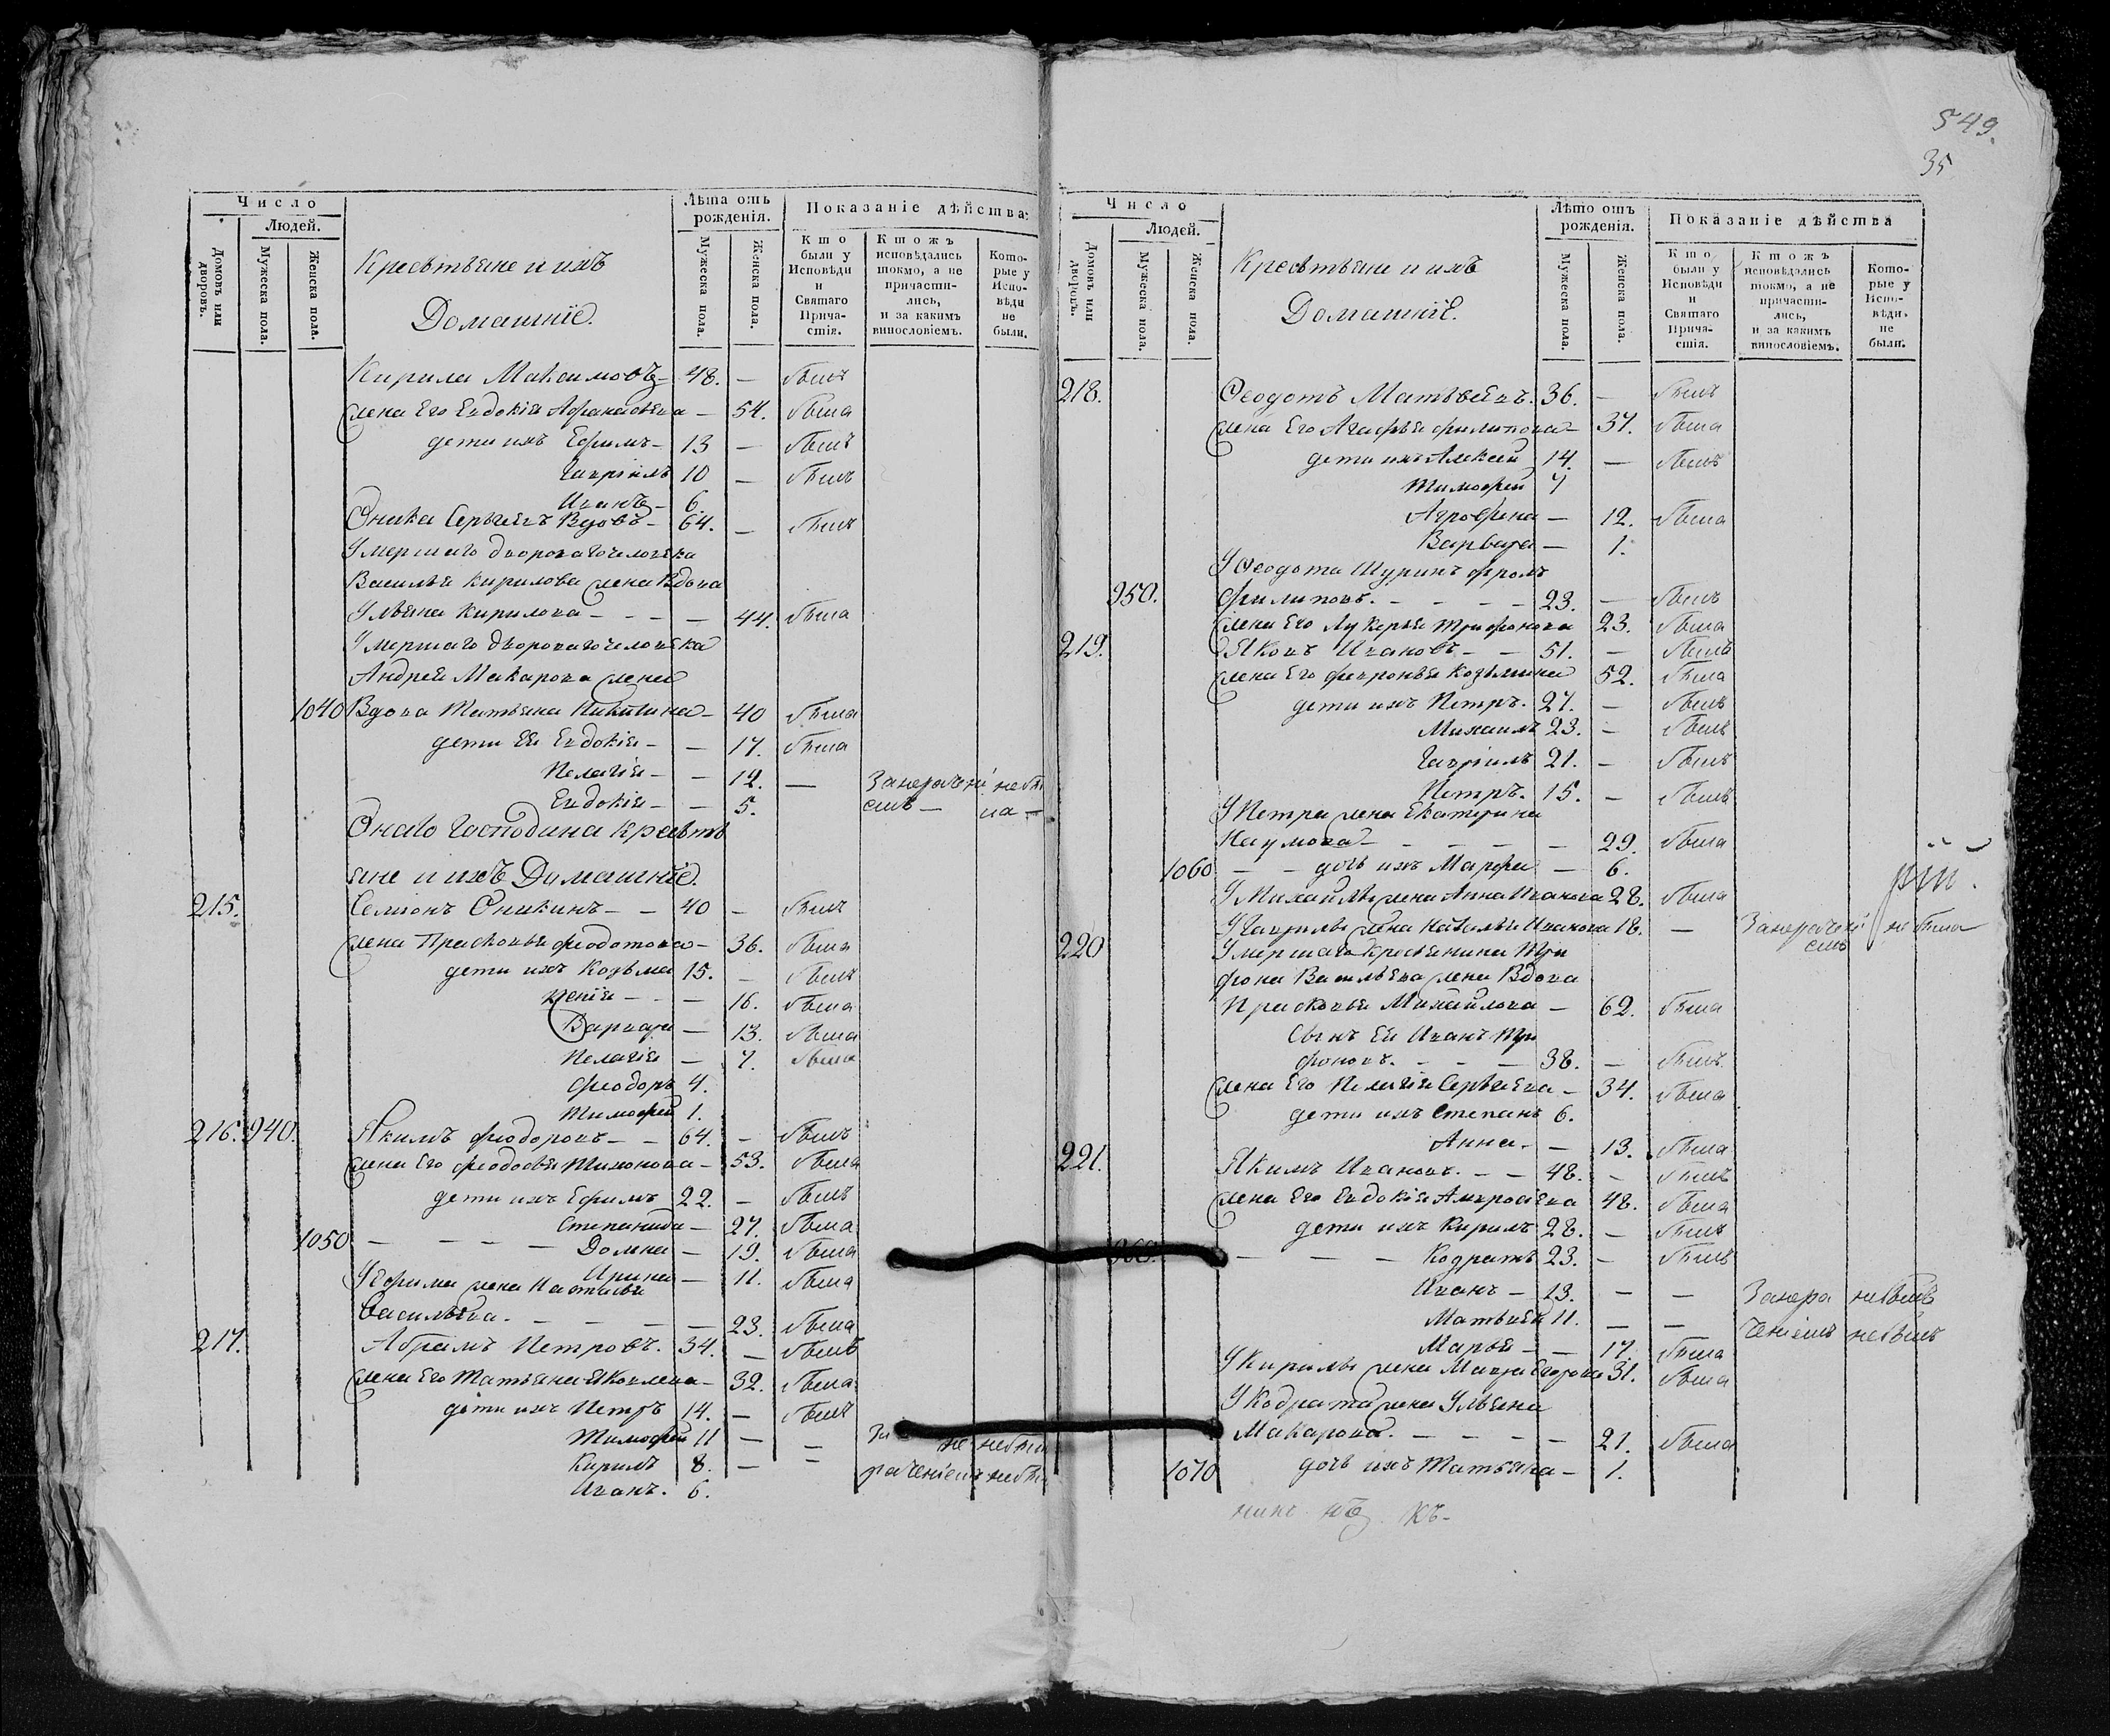 Число
Людей.
Домовъ или дворовъ.
Мужеска пола.
Женска пола.
Крестьяне и ихъ
Домашніе.
Лѣта отъ рожденія.
Мужеска пола.
Женска пола.
Показаніе дѣйства.
Кто были у Исповѣди и Святаго Прича-стія.
Ктожъ исповѣдались токмо, а не причасти-лись, и за какимъ винословіемъ.
Кото-рые у Испо-вѣди не были.
Кирила Максимовъ - 48. — былъ
жена Его Евдокія Афанасьева — 54. была
дети ихъ Ефимъ - 13 — былъ
Гавріилъ 10 — былъ
Иванъ - 6.
Оника Сергѣевъ Вдовъ - 64. — былъ
Умершаго двороваго человека
Василья Кирилова жена Вдова
Ульяна Кирилова - - - — 44. была
Умершаго двороваго человека
Андрея Макарова жена
1040 Вдова Татьяна Никитина - 40 была
дети Ея Евдокія - — 17. была
Пелагія - — 12. — Занераченіемъ — не была —
Евдокія - — 5.
Онаго Господина крестьяне и ихъ Домашніе.
215. Семионъ Оникинъ - — 40 — былъ
жена Прасковья Феодотова — 36. была
дети ихъ Козьма 15. — былъ
— 16. была
Варвара — 13. была
Пелагія — 7. была
Феодоръ 4.
Тимофей 1.
216. 940. Якимъ Феодоровъ - — 64. — былъ
жена Его Феодосья Тихонова — 53. была
дети ихъ Ефимъ 22. — былъ
Степанида — 27. была
1050 — — — — Домна — 19. была
Ирина — 11. была
У Ефима жена Наталья
Васильева. — — — — 23. была
217. Абрамъ Петровъ. 34. — былъ
жена Его Татьяна Яковлева — 32. была
дети ихъ Петръ 14. — былъ
Тимофей 11 — — За не не бы
Кирилъ 8. — — раченіемъ не бы
Иванъ. 6.
549.
35
Число
Людей.
Домовъ или дворовъ.
Мужеска пола.
Женска пола.
Крестьяне и ихъ
Домашніе.
Лѣто отъ рожденія.
Мужеска пола.
Женска пола.
Показаніе дѣйства
Кто были у Исповѣди и Святаго Прича-стія.
Ктожъ исповѣдались токмо, а не причасти-лись, и за какимъ винословіемъ.
Кото-рые у Испо-вѣди не были.
218. Феодотъ Матвѣевъ. 36. — былъ
жена Его Агафья Филипова — 37. была
дети ихъ Алексей 14. — былъ
Тимофей 7
Агрофена — 12. была
Варвара — 1.
У Феодота Шуринъ Фролъ
950. Филиповъ. — — — — 23. — былъ
жена Его Лукерья Трифонова 23. была
219. Яковъ Ивановъ — — 51. — былъ
жена Его Февронья Козьмина 52. была
дети ихъ Петръ. 27. — былъ
Михаилъ 23. — былъ
Гавріилъ 21. — былъ
Петръ. 15. — былъ
У Петра жена Екатерина
Наумова — — — — — 29. была
1060 — — дочь ихъ Марфа — 6.
У Михайлы жена Анна Иванова 28. была
У Гаврилы жена Наталья Иванова 18. — Занераченіемъ не была
220 Умершаго Крестьянина Три
фона Васильева жена Вдова
Прасковья Михайлова — 62. была
Сынъ Ея Иванъ Три
фоновъ. — — — 38. — былъ.
жена Его Пелагія Сергѣева — 34. была
дети ихъ Степанъ 6.
Анна. — 13. была
221. Якимъ Ивановъ. — — 48. — былъ
жена Его Евдокія Амвросиева 48. была
дети ихъ Кирилъ 28. — былъ
960. — — — Кодратъ 23. — былъ
Иванъ — 13. — — Занера не былъ
Матвѣй 11. — — ченіемъ не былъ
Марья — — 17. была
У Кирилы жена Мавра Егорова 31. была
У Кодрата жена Ульяна
Макарова. — — — — 21. была
1070 дочь ихъ Татьяна — 1.